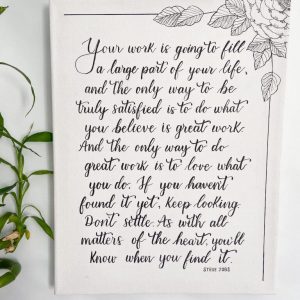 Your work is going to fill
a large part of your life,
and the only way to be
truly satisfied is to do what
you believe is great work.
And the only way to do
great work is to love what
you do. If you haven't
found it yet, Keep looking.
Don't settle. As with all
matters of the heart, you'll
Know when you find it.
STEVE JOBS